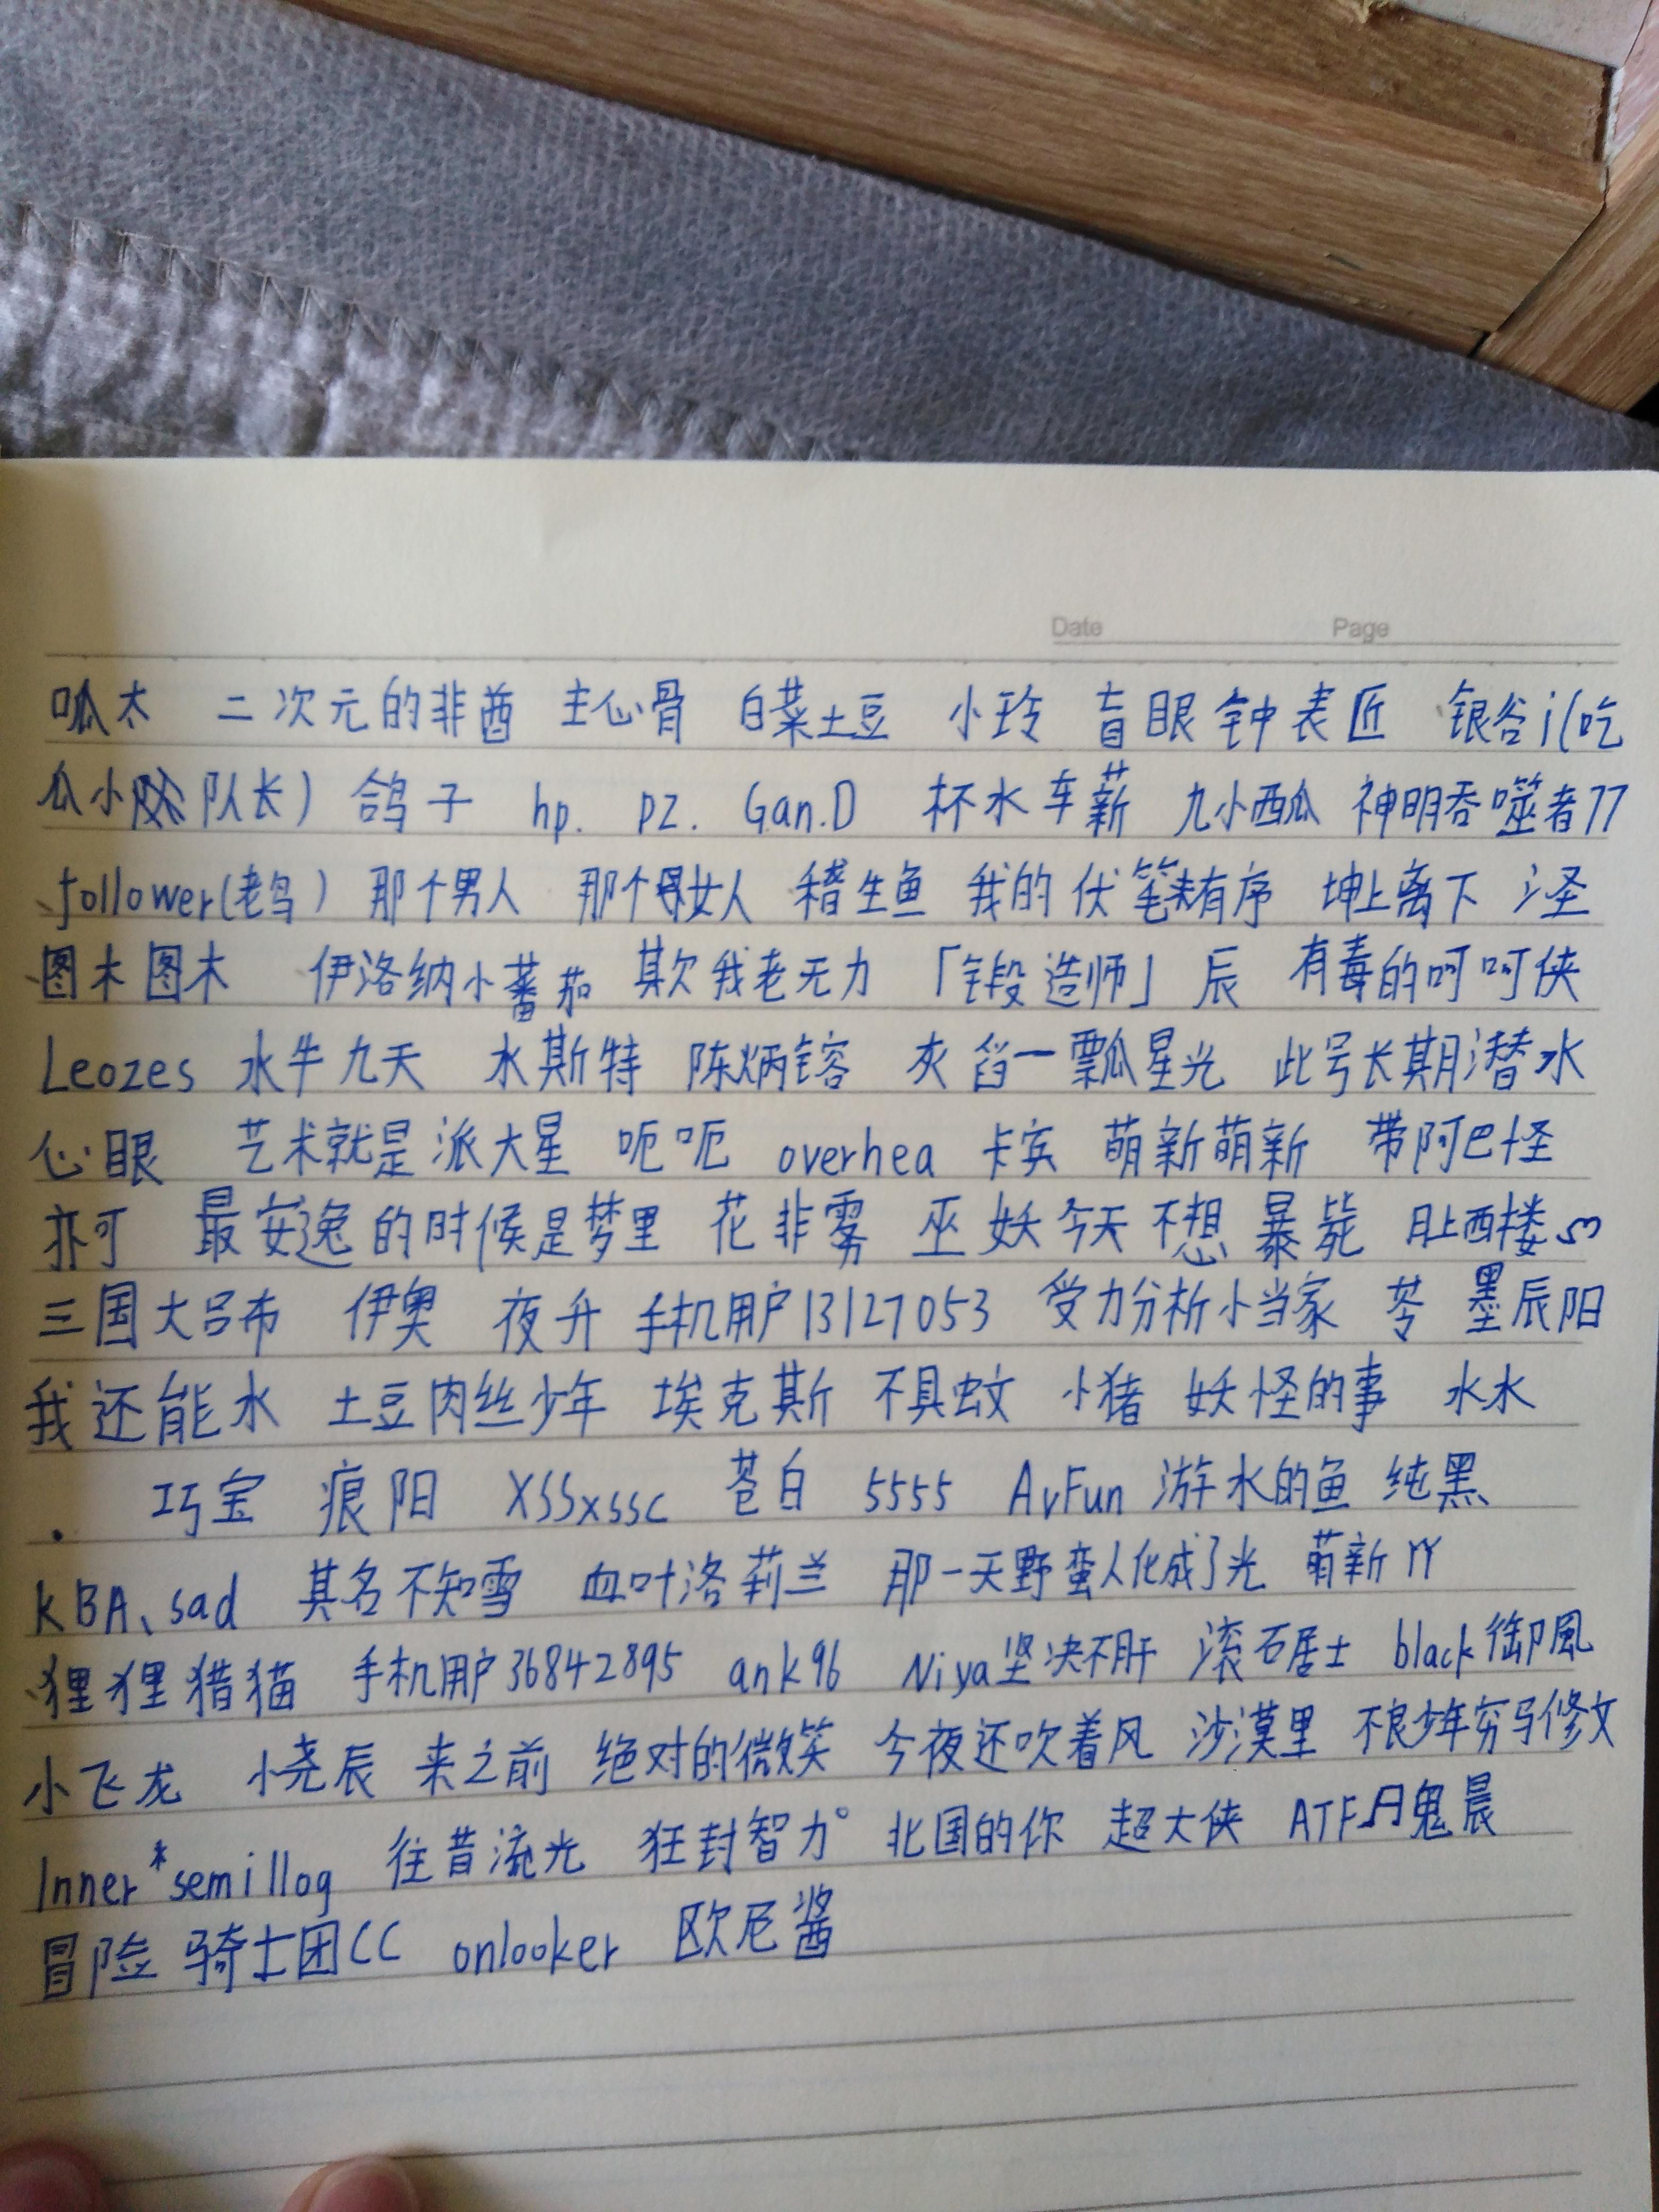 Date Page
呱太 二次元的非酋 主心骨 白菜土豆 小玲 盲眼钟表匠 银谷i(吃
瓜小队长) 鸽子 hp. pz. Gan.D 杯水车薪 九小西瓜 神明吞噬者77
follower(老鸟) 那个男人 那个女人 稽生鱼 我的伏笔未有序 坤上离下 泾
图木图木 伊洛纳小蕃茄 欺我老无力 「锻造师」辰 有毒的呵呵侠
Leozes 水牛九天 水斯特 陈炳镕 灰 舀一瓢星光 此号长期潜水
心眼 艺术就是派大星 呃呃 overhea 卡宾 萌新萌新 带阿巴怪
亦可 最安逸的时候是梦里 花非雾 巫妖今天不想暴毙 月上西楼
三国大吕布 伊奥 夜升 手机用户13127053 受力分析小当家 苓 墨辰阳
我还能水 土豆肉丝少年 埃克斯 不具蚊 小猪 妖怪的事 水水
. 巧宝 痕阳 XSSxssc 苍白 5555 AvFun 游水的鱼 纯黑
KBA、sad 其名不知雪 血叶洛莉兰 那一天野蛮人化成了光 萌新YY
狸狸猎猫 手机用户36842895 ank96 Niya坚决不肝 滚石居士 black御風
小飞龙 小尧辰 来之前 绝对的微笑 今夜还吹着风 沙漠里 不良少年穷马修文
Inner*semillog 往昔流光 狂封智力° 北国的你 超大侠 ATF月鬼晨
冒险骑士团CC onlooker 欧尼酱